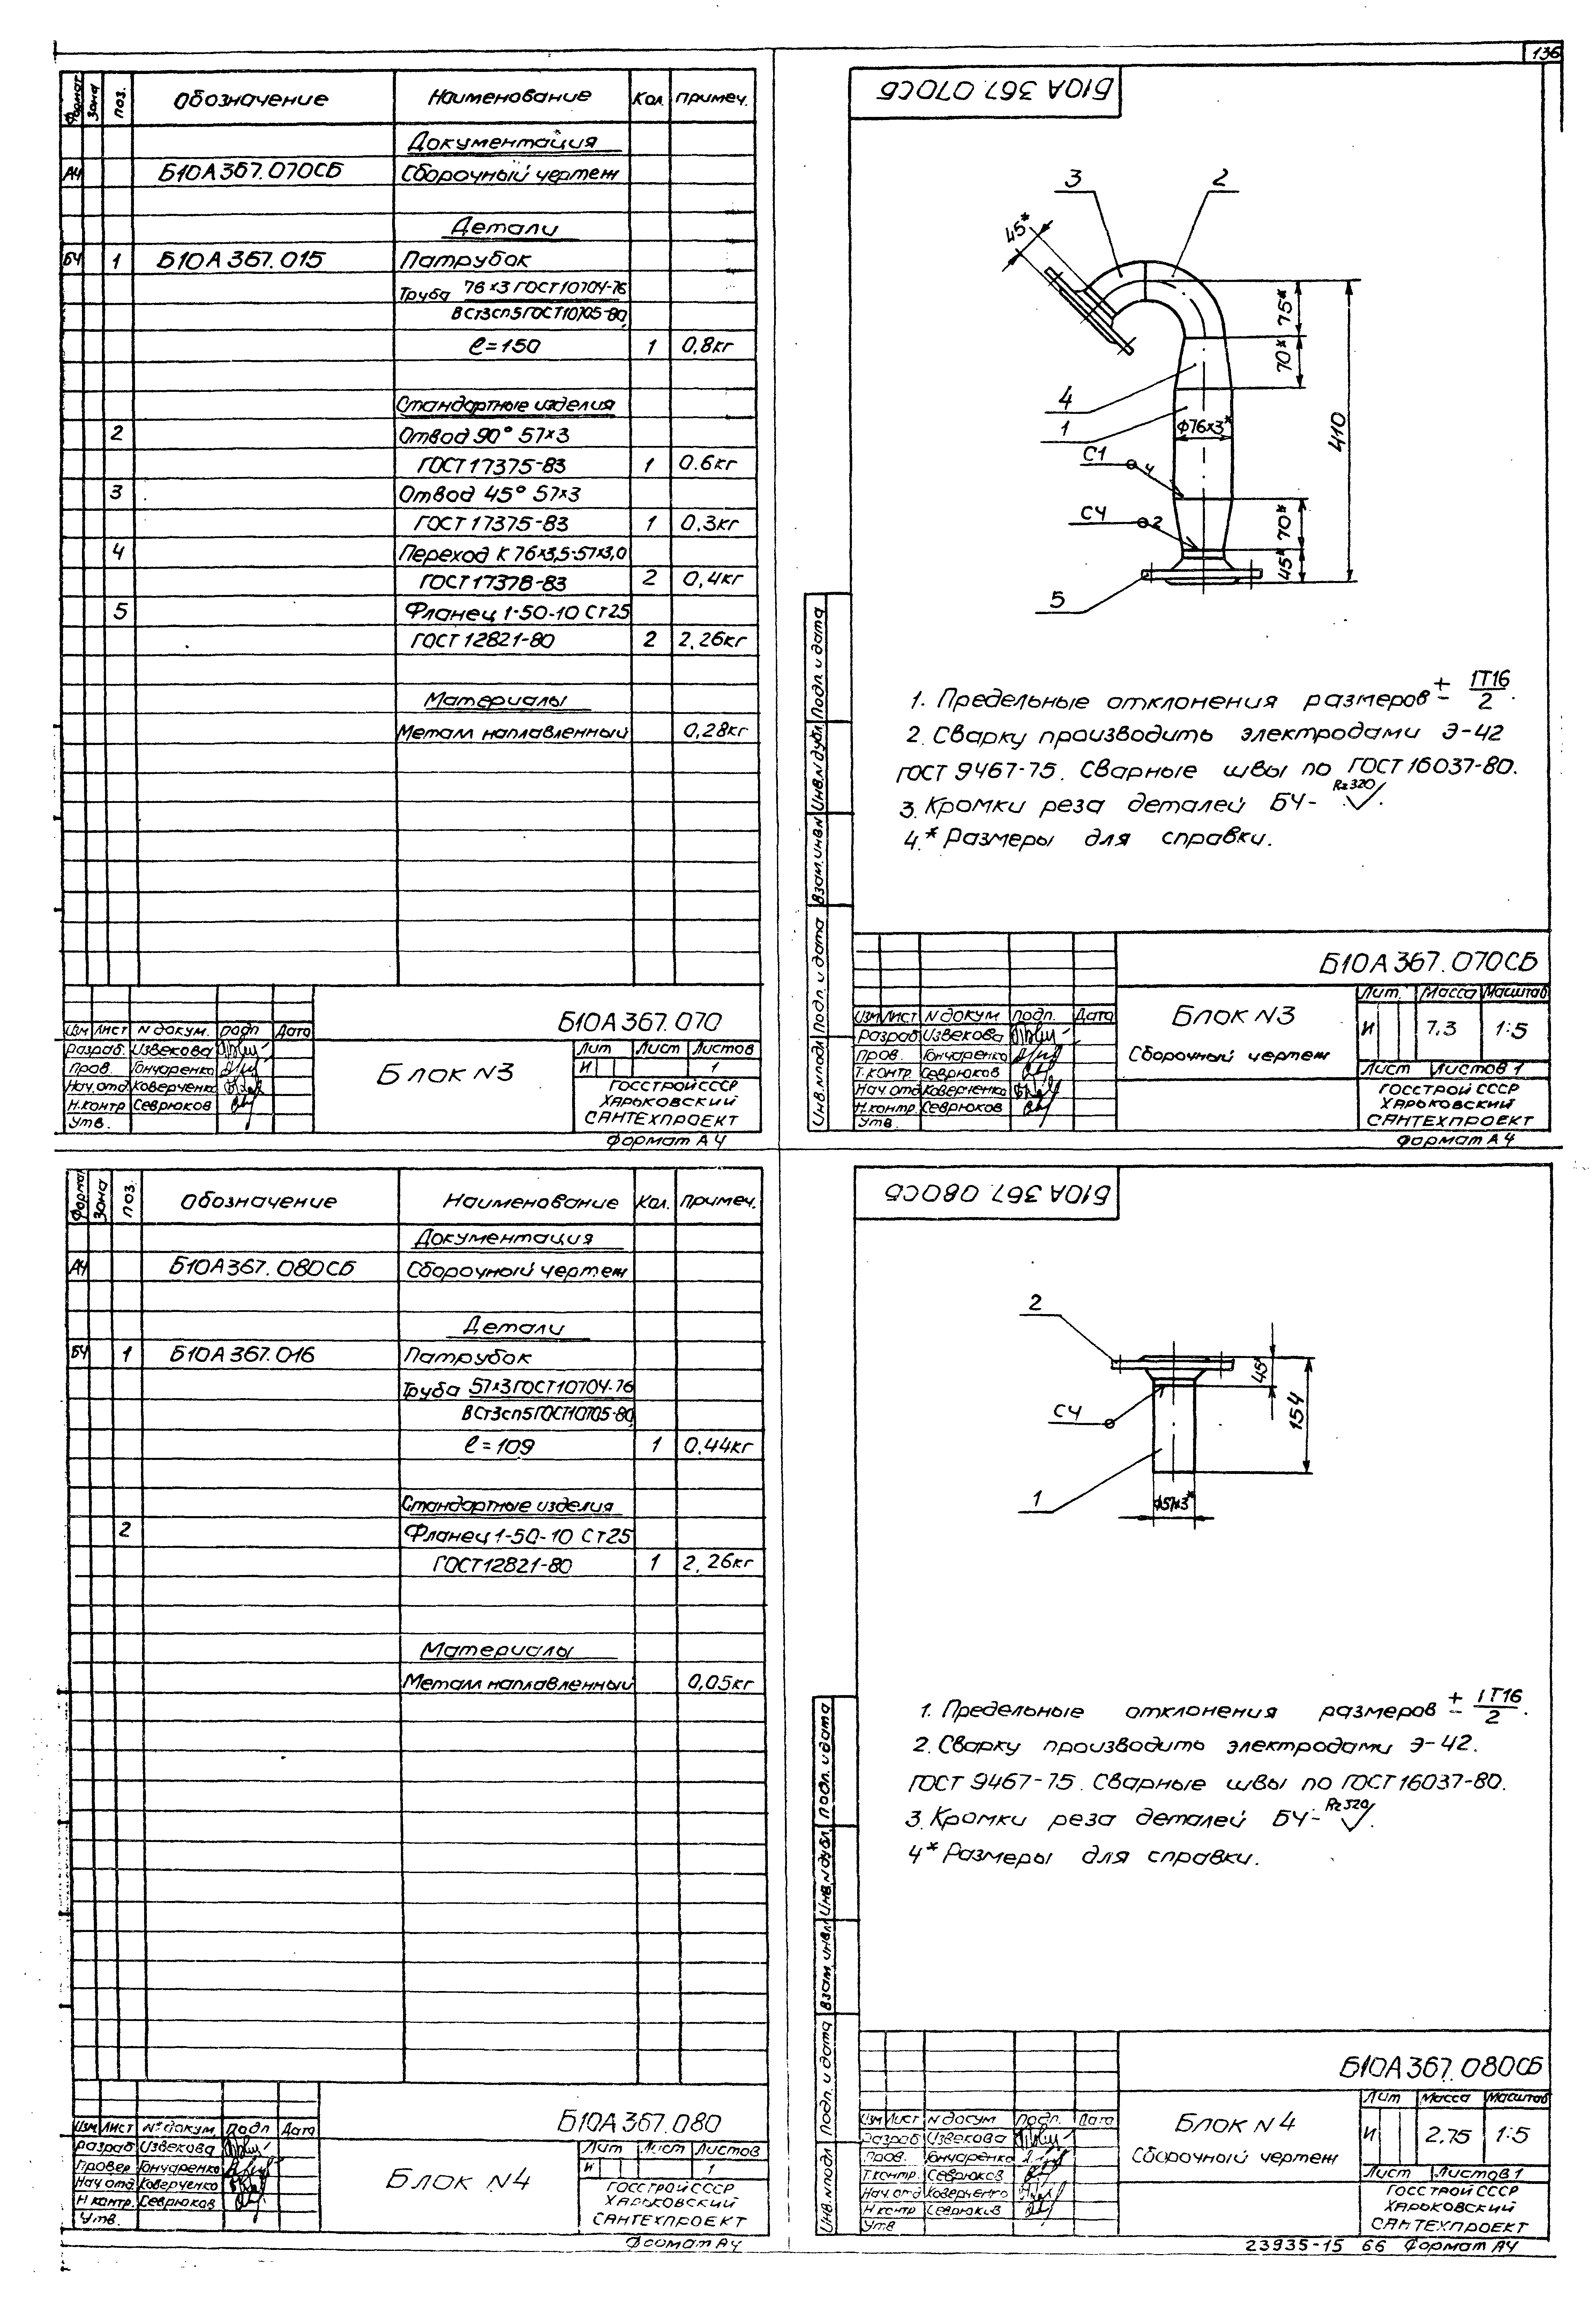 136
Формат Зона Поз. Обозначение Наименование Кол. Примеч.
Документация
А4 Б10А367.070СБ Сборочный чертеж
Детали
БЧ 1 Б10А367.015 Патрубок
Труба 76×3 ГОСТ10704-76
ВСт3сп5ГОСТ10705-80,
ℓ=150 1 0,8кг
Стандартные изделия
2 Отвод 90° 57×3
ГОСТ17375-83 1 0.6кг
3 Отвод 45° 57×3
ГОСТ17375-83 1 0,3кг
4 Переход К 76×3,5-57×3,0
ГОСТ17378-83 2 0,4кг
5 Фланец 1-50-10 Ст25
ГОСТ12821-80 2 2,26кг
Материалы
Металл наплавленный 0,28кг
Изм Лист N докум. Подп Дата
Разраб. Извекова
Пров. Гончаренко
Нач.отд Коверченко
Н.контр Севрюков
Утв.
Б10А367.070
Блок N3
Лит Лист Листов
И 1
ГОССТРОЙ СССР
ХАРЬКОВСКИЙ
САНТЕХПРОЕКТ
Формат А4
Б10А 367.070СБ
3 2
45*
75*
70*
4
1
φ76×3*
410
С1
4
С4
2
70*
45*
5
1. Предельные отклонения размеров ± IT16/2.
2. Сварку производить электродами Э-42
ГОСТ 9467-75. Сварные швы по ГОСТ16037-80.
3. Кромки реза деталей БЧ- Rz320.
4.* Размеры для справки.
Инв.Nподл Подп. и дата Взам.инв.N Инв.N дубл. Подп. и дата
Изм Лист N докум Подп. Дата
Разраб Извекова
Пров. Гончаренко
Т.контр. Севрюков
Нач.отд Коверченко
Н.контр. Севрюков
Утв.
Б10А367.070СБ
Блок N3
Сборочный чертеж
Лит. Масса Масштаб
И 7,3 1:5
Лист Листов 1
ГОССТРОЙ СССР
ХАРЬКОВСКИЙ
САНТЕХПРОЕКТ
Формат А4
Формат Зона Поз. Обозначение Наименование Кол. Примеч.
Документация
А4 Б10А367.080СБ Сборочный чертеж
Детали
БЧ 1 Б10А367.016 Патрубок
Труба 57×3ГОСТ10704-76
ВСт3сп5ГОСТ10705-80,
ℓ=109 1 0,44кг
Стандартные изделия
2 Фланец 1-50-10 Ст25
ГОСТ12821-80 1 2,26кг
Материалы
Металл наплавленный 0,05кг
Изм Лист N°докум. Подп Дата
Разраб Извекова
Провер Гончаренко
Нач отд Коверченко
Н контр. Севрюков
Утв.
Б10А367.080
Блок N4
Лит Лист Листов
И 1
ГОССТРОЙ СССР
ХАРЬКОВСКИЙ
САНТЕХПРОЕКТ
Формат А4
Б10А 367.080СБ
2
45*
154
С4
1
φ57×3*
1. Предельные отклонения размеров ± IT16/2.
2. Сварку производить электродами Э-42.
ГОСТ 9467-75. Сварные швы по ГОСТ16037-80.
3. Кромки реза деталей БЧ- Rz320.
4* Размеры для справки.
Инв.Nподл Подп. и дата Взам инв.N Инв.N дубл. Подп. и дата
Изм Лист N докум Подп. Дата
Разраб Извекова
Пров. Гончаренко
Т.контр Севрюков
Нач.отд Коверченко
Н контр Севрюков
Утв
Б10А367.080СБ
Блок N4
Сборочный чертеж
Лит Масса Масштаб
И 2,75 1:5
Лист Листов 1
ГОССТРОЙ СССР
ХАРЬКОВСКИЙ
САНТЕХПРОЕКТ
23935-15 66 Формат А4